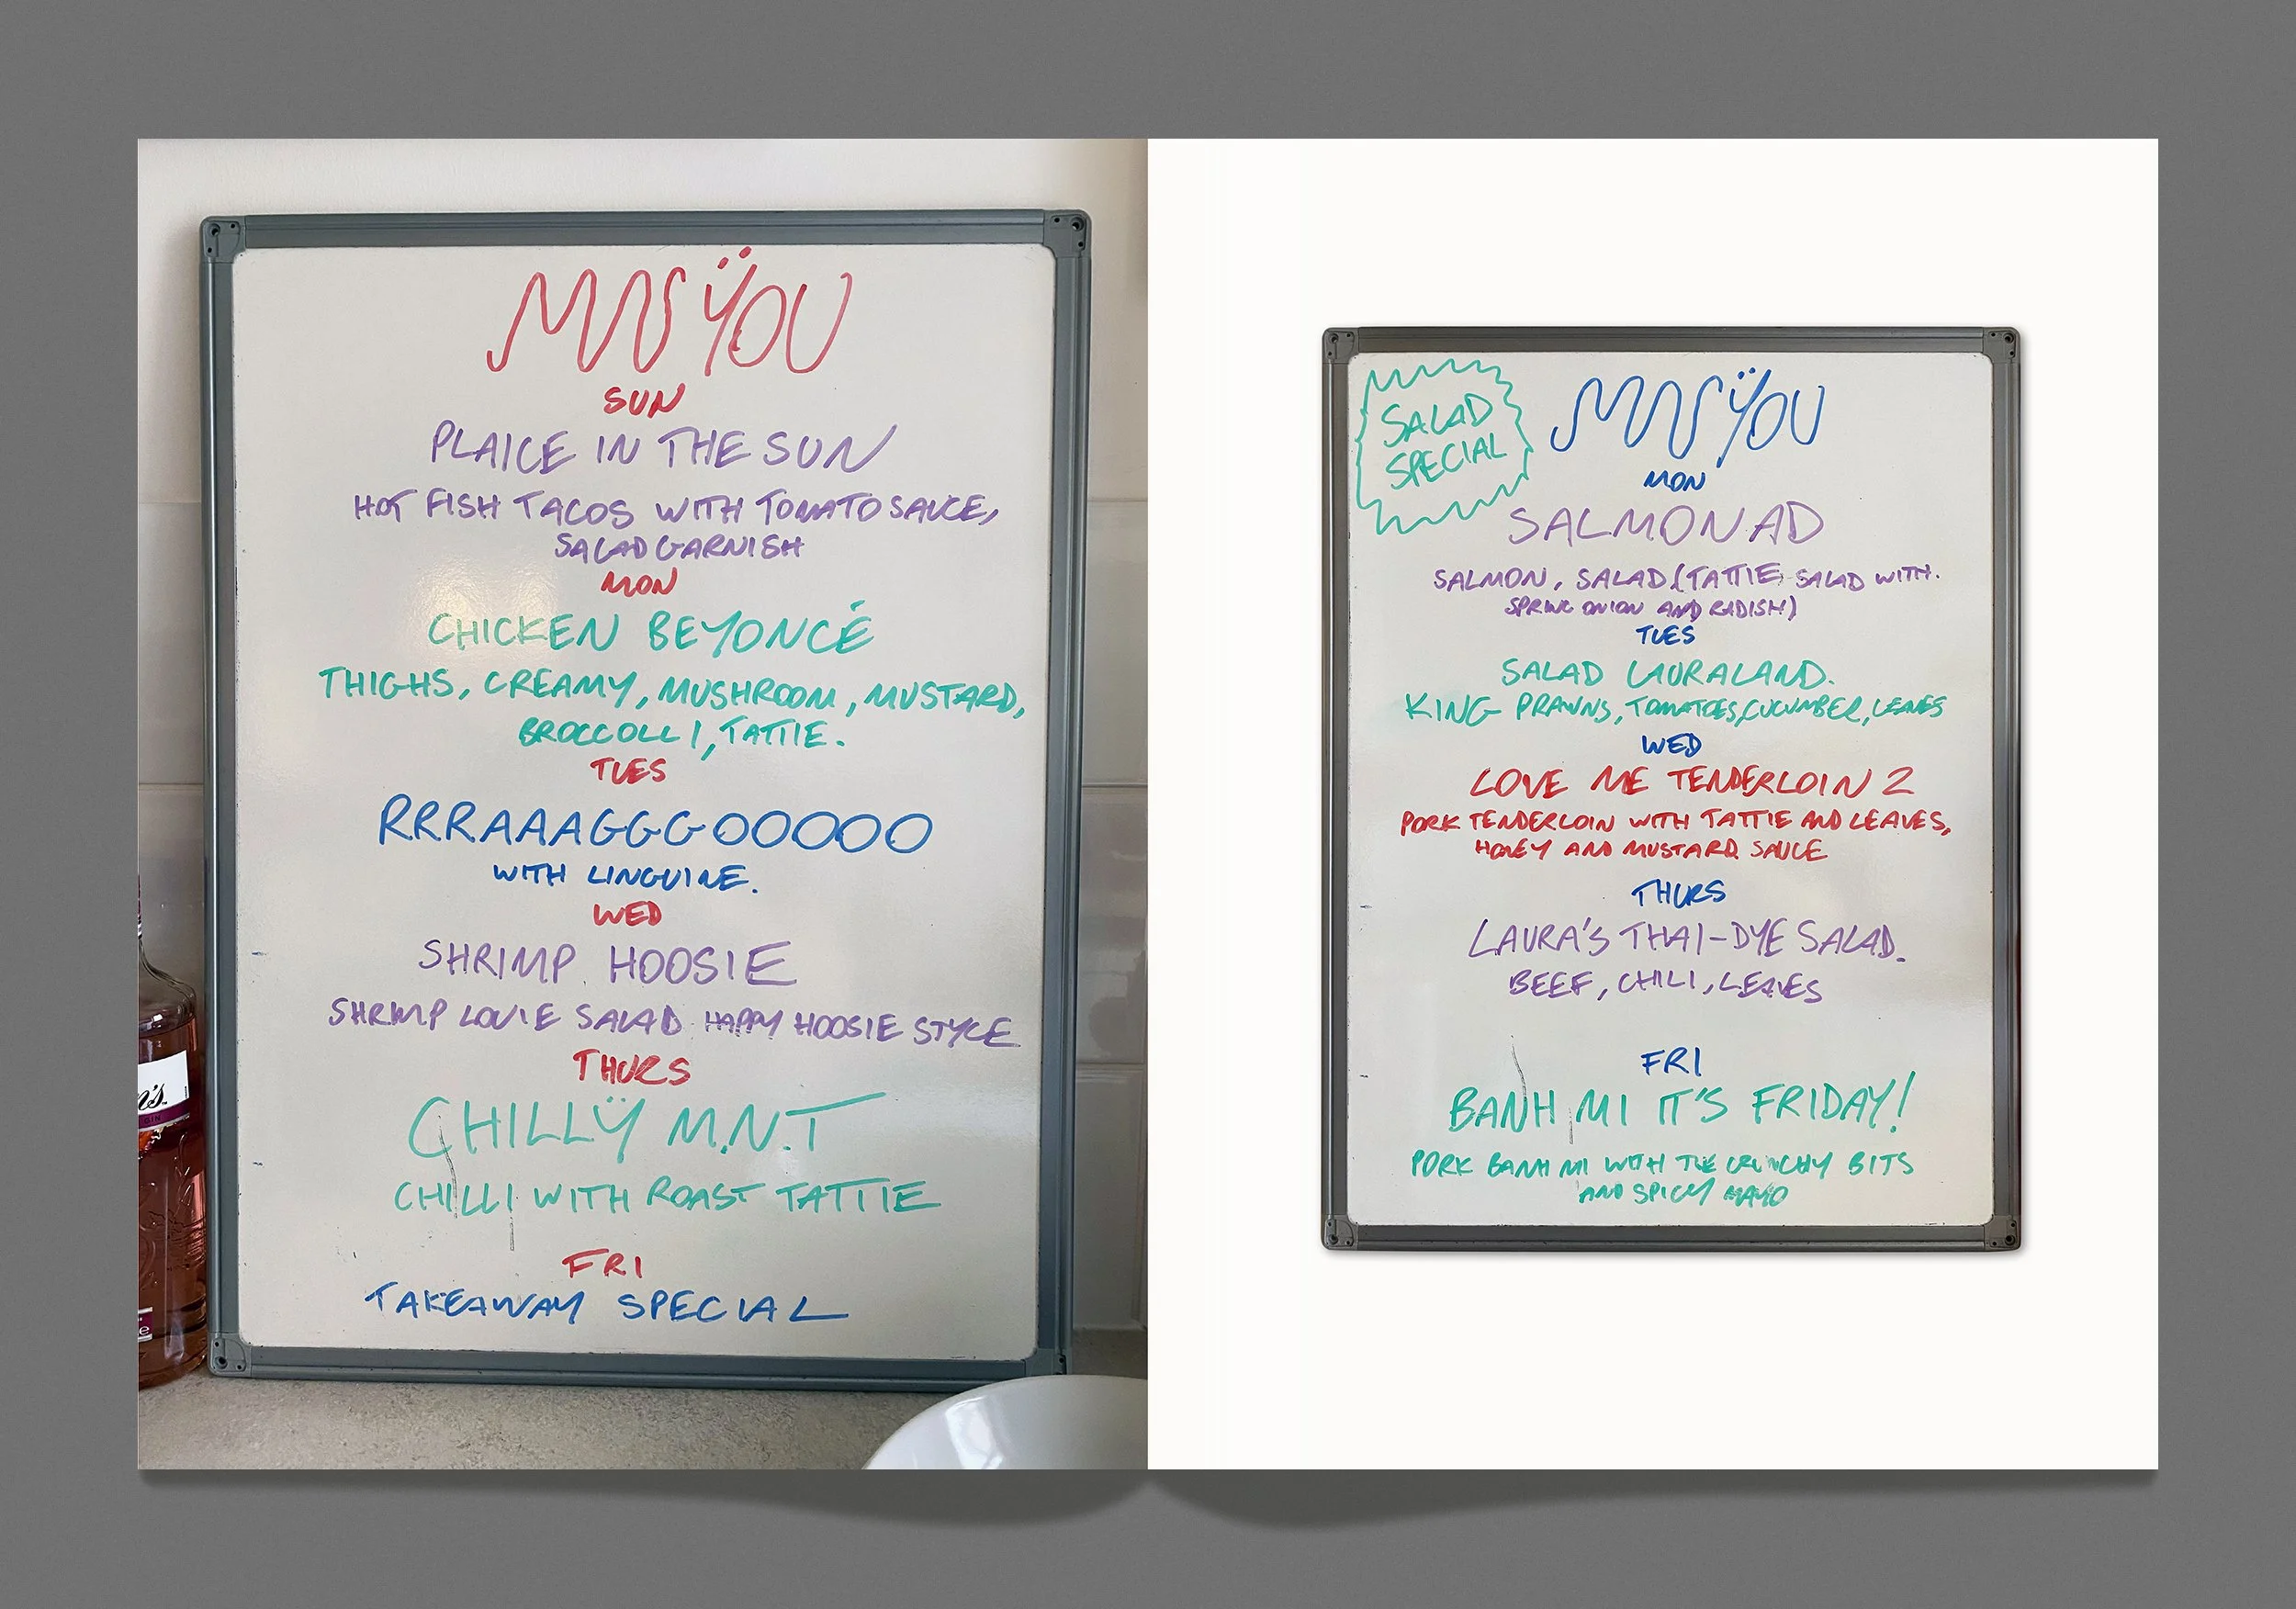 MNŸOU
SUN
PLAICE IN THE SUN
HOT FISH TACOS WITH TOMATO SAUCE,
SALAD GARNISH
MON
CHICKEN BEYONCÉ
THIGHS, CREAMY, MUSHROOM, MUSTARD,
BROCCOLLI, TATTIE.
TUES
RRRAAAGGGOOOOO
WITH LINGUINE.
WED
SHRIMP HOOSIE
SHRIMP LOUIE SALAD HAPPY HOOSIE STYLE
THURS
CHILLŸ M.N.T
CHILLI WITH ROAST TATTIE
FRI
TAKEAWAY SPECIAL
SALAD
SPECIAL
MNŸOU
MON
SALMONAD
SALMON, SALAD (TATTIE SALAD WITH.
SPRING ONION AND RADISH)
TUES
SALAD LAURALAND.
KING PRAWNS, TOMATOES, CUCUMBER, LEAVES
WED
LOVE ME TENDERLOIN 2
PORK TENDERLOIN WITH TATTIE AND LEAVES,
HONEY AND MUSTARD SAUCE
THURS
LAURA'S THAI-DYE SALAD.
BEEF, CHILI, LEAVES
FRI
BANH MI IT'S FRIDAY!
PORK BANH MI WITH THE CRUNCHY BITS
AND SPICY MAYO